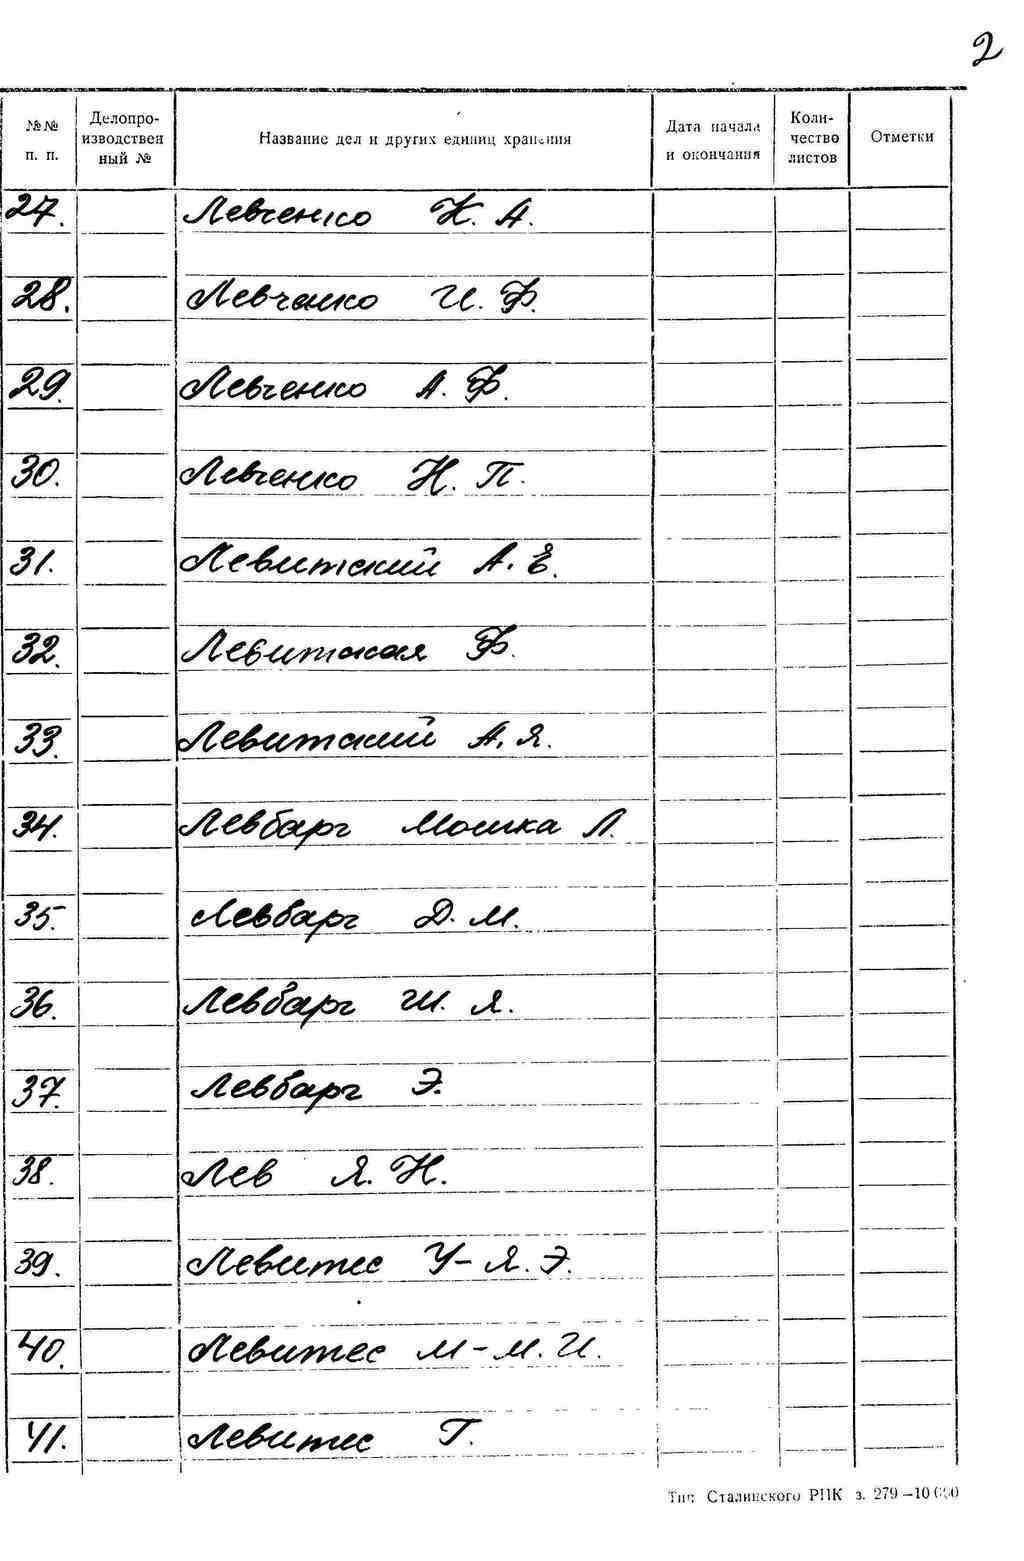 2
№№ п. п. Делопроизводствен ный № Название дел и других единиц хранения Дата начала и окончания Количество листов Отметки
27. Левченко К. А.
28. Левченко И. Ф.
29. Левченко А. Ф.
30. Левченко Н. П.
31. Левитский А. Е.
32. Левитская Ф.
33. Левитский А. Я.
34. Левбарг Мошка Л.
35. Левбарг Д. М.
36. Левбарг Ш. Я.
37. Левбарг Э.
38. Лев Я. Н.
39. Левитес У-Я. Э.
40. Левитес М-М. И.
41. Левитес Г.
Тип Сталинского РПК з. 279—10 000